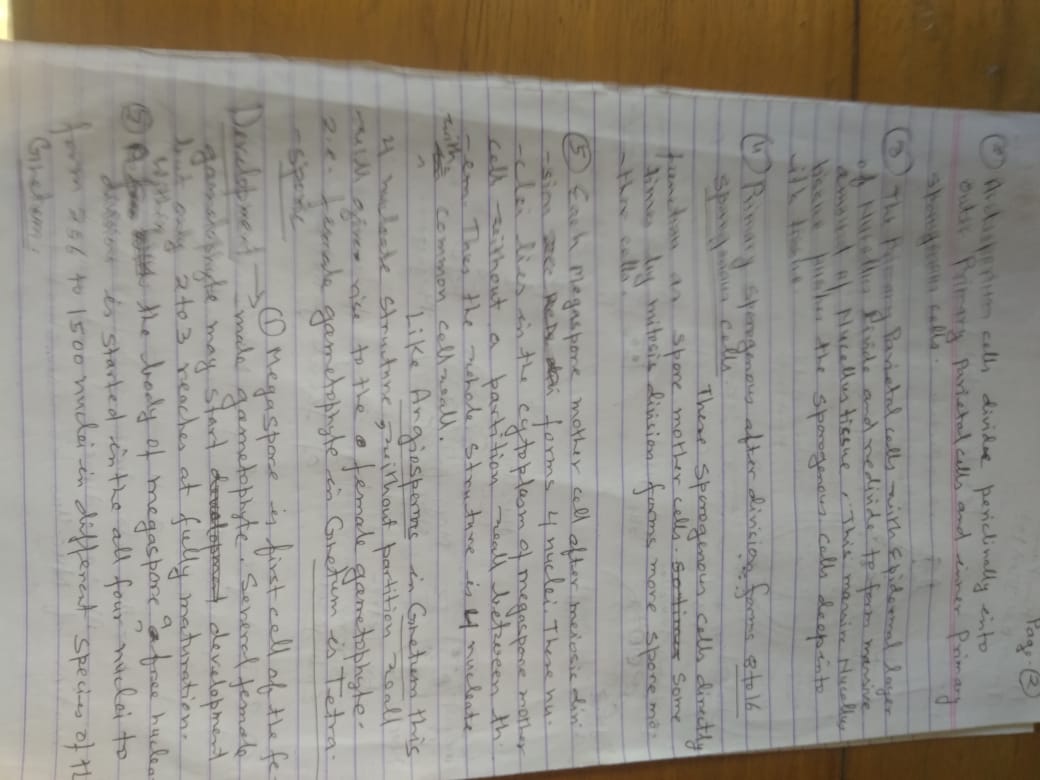 Page. (2)
(2) Archesporium cells divide periclinally into
outer Primary Parietal cells and inner Primary
sporogenous cells.
(3) The Primary Parietal cells with epidermal layer
of Nucellus divide and redivide to form massive
amount of Nucellus tissue. This massive Nucellus
tissue pushes the sporogenous cells deep into
the tissue
(4) Primary sporogenous after division forms 8 to 16
sporogenous cells
These sporogenous cells directly
function as spore mother cells. Some
times by mitosis division forms more spore mo-
-ther cells.
(5) Each Megaspore mother cell after meiosis divi-
-sion forms 4 nuclei. These nu-
-clei lies in the cytoplasm of megaspore mother
cell without a partition wall between th-
-em. Thus the whole structure is 4 nucleate
with common cell-wall.
Like Angiosperms in Gnetum this
4 nucleate structure, without partition wall
will give rise to the female gametophyte.
i.e. female gametophyte in Gnetum is Tetra-
-sporic
Development → (1) Megaspore is first cell of the fe-
-male gametophyte. Several female
gametophyte may start development
but only 2 to 3 reaches at fully maturation.
(2) Within the body of megaspore, a free nuclea
division is started in the all four nuclei to
form 256 to 1500 nuclei in different species of th
Gnetum.